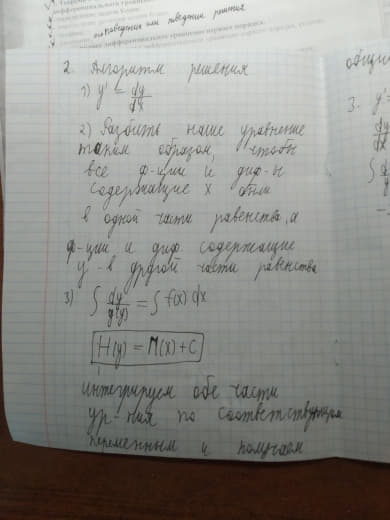 поведения или поведения решения
2. Алгоритм решения
общи
1) y' = dy/dx
3. y'
2) Разбить наше уравнение
dy/dx
таким образом, чтобы
все ф-ции и диф-ы
содержащие x были
в одной части равенства, а
ф-ции и диф. содержащие
y - в другой части равенства
3) ∫ dy/g(y) = ∫ f(x) dx
H(y) = M(x) + C
интегрируем обе части
ур-ния по соответствующим
переменным и получаем